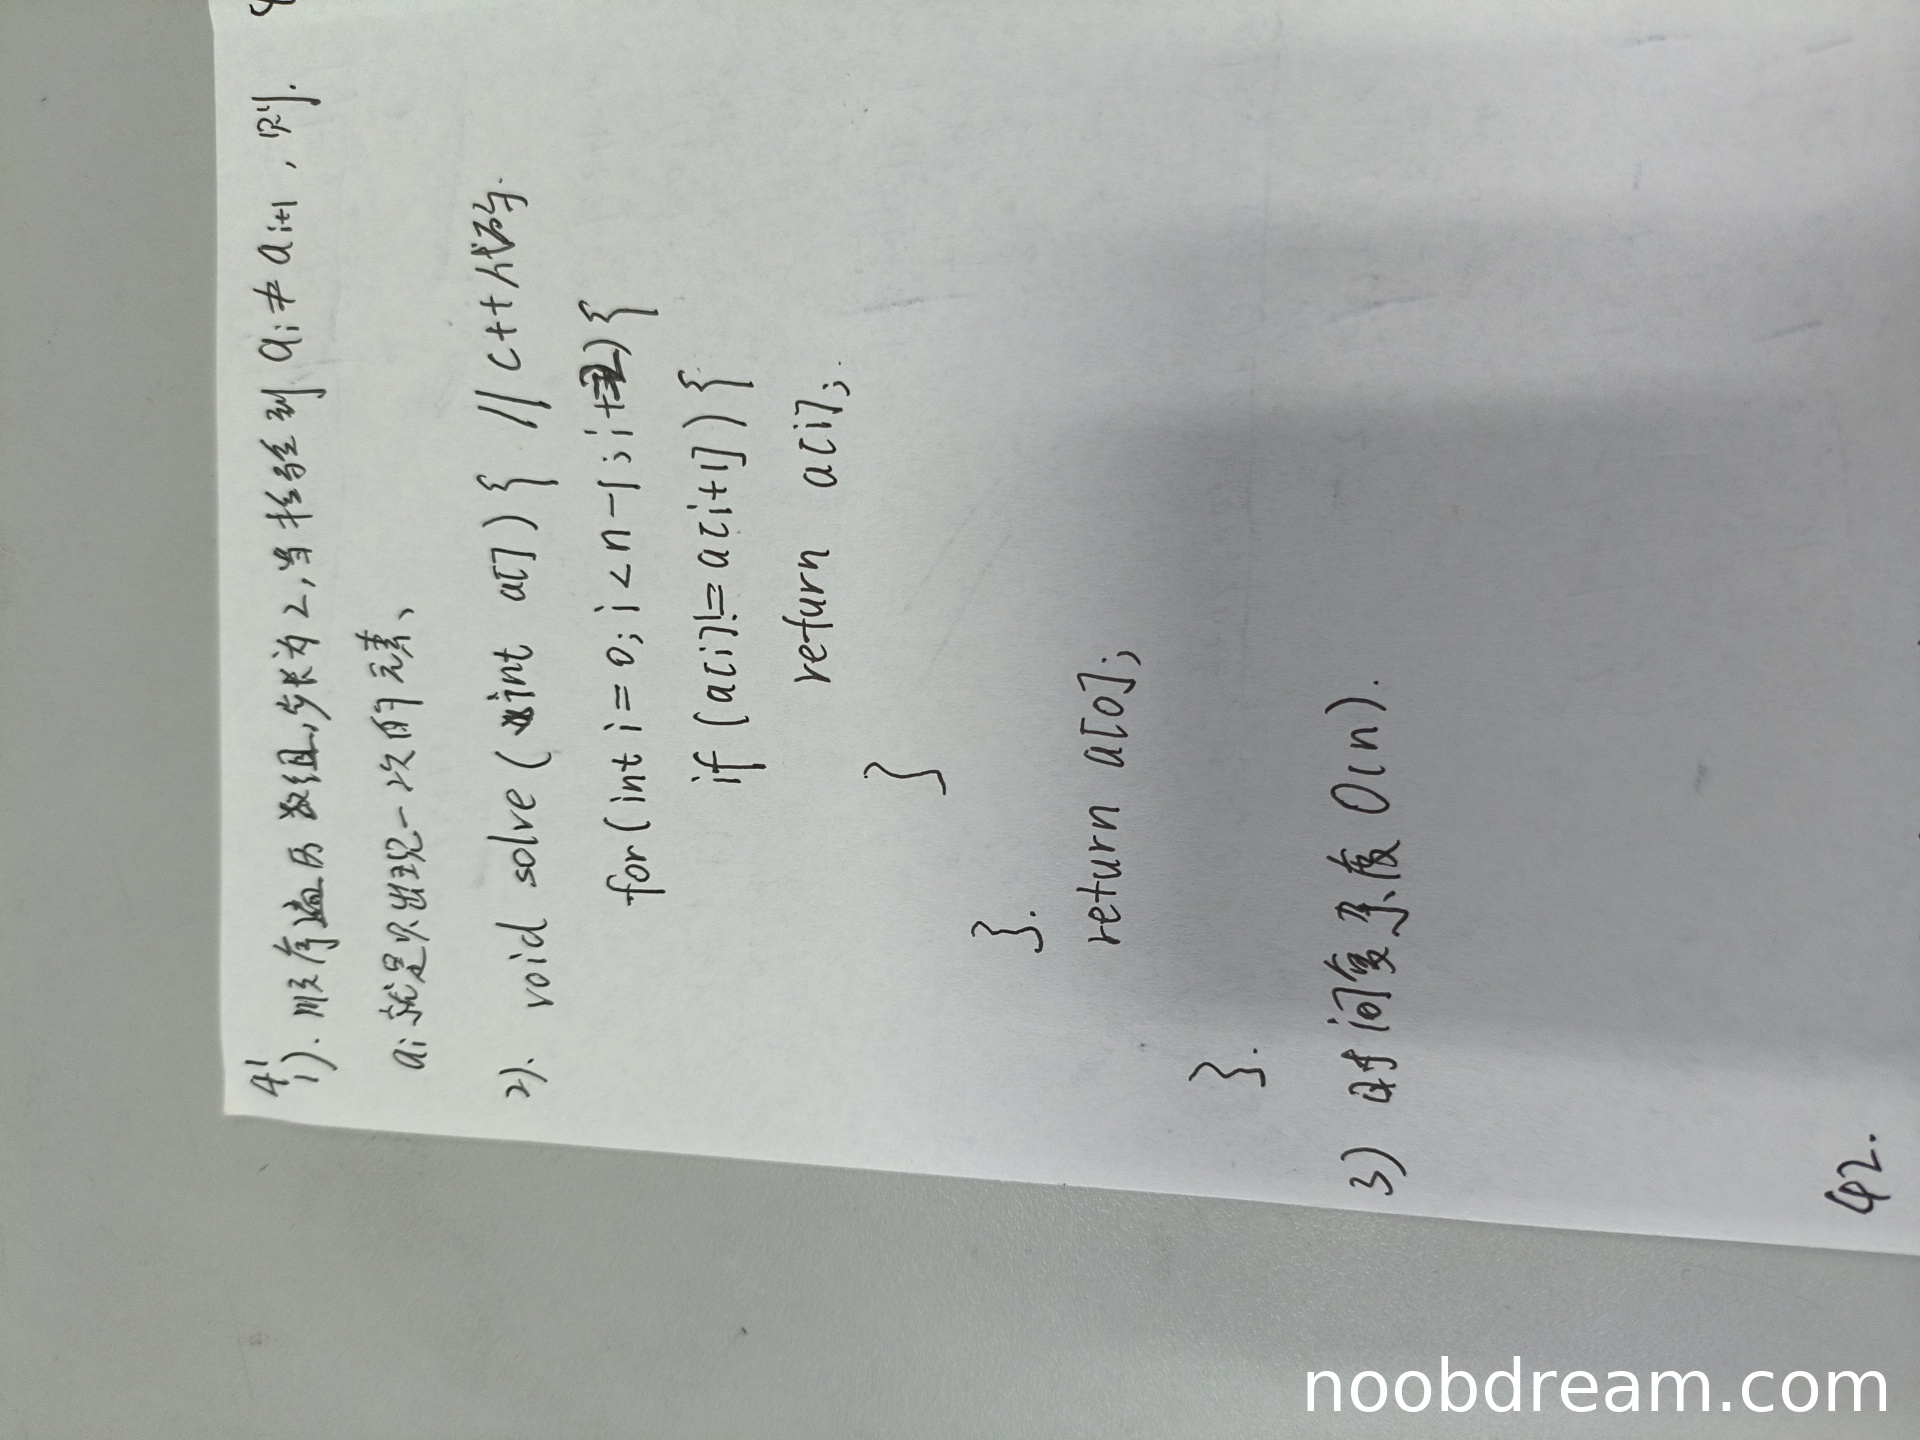 41
1). 顺序遍历数组,步长为2,当検验到 ai≠ai+1,则.
ai就是只出现一次的元素、
2). void solve(int a[]){ //c++代码.
for(int i=0;i<n-1;i+=2){
if(a[i]!=a[i+1]){
return a[i];
}
}.
return a[0];
}.
3) 时间复杂度O(n).
42.
noobdream.com